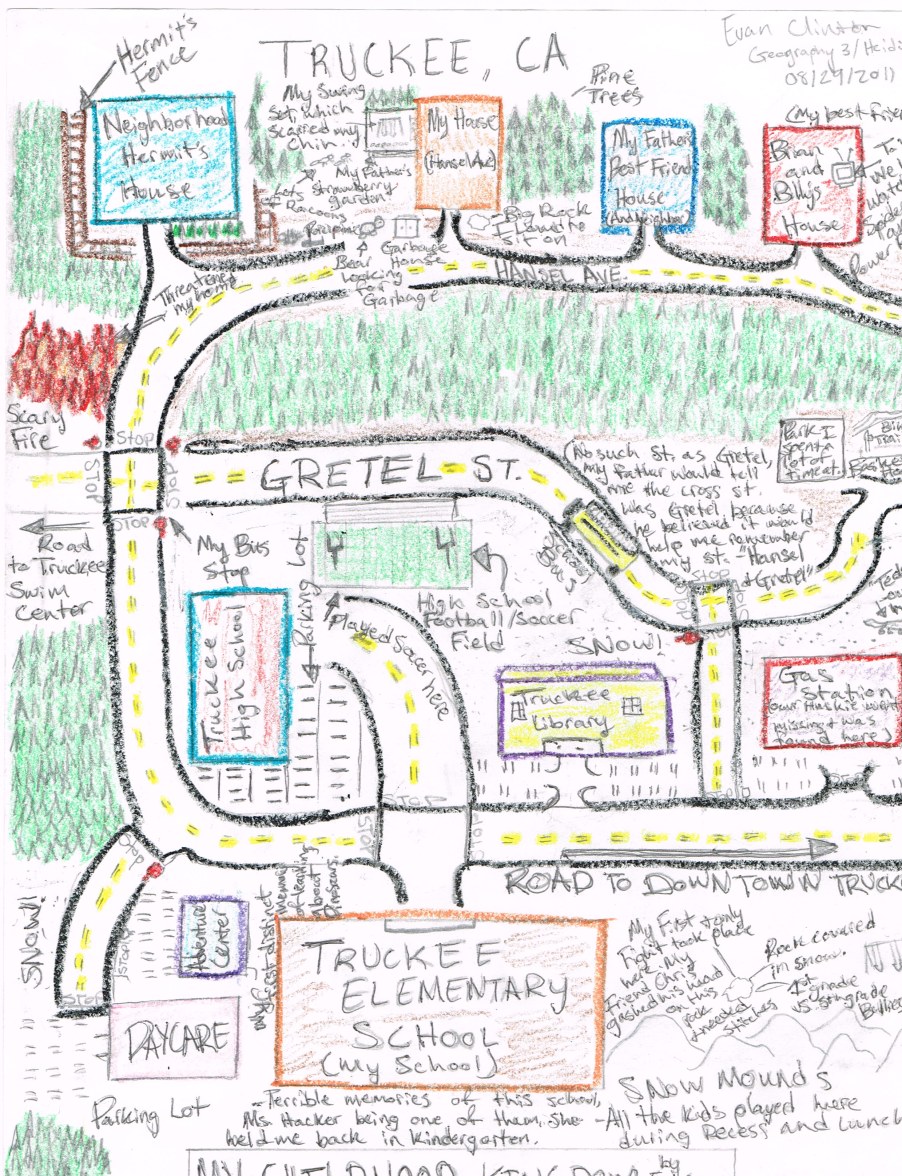 Hermit's
Fence
TRUCKEE, CA
Evan Clinton
Geography 3/Heidi
08/29/2011
Neighborhood
Hermit's
House
My Swing
Set, which
scarred my
chin.
My House
(Hansel Ave)
Pine
Trees
My Father's
Best Friend
House
(And Neighbor)
(My best frie
Brian
and
Billy's
House
To
We
Watch
Spide
Power
My Father's
Strawberry
garden
Lots
Racoons
Big Rock
I Would
sit on
Garbage
House
Bear
looking
for
Garbage
HANSEL AVE.
Threatened
my home
Scary
Fire
STOP
STOP
STOP
STOP
GRETEL ST.
Road
to Truckee
Swim
Center
My Bus
Stop
(No such St. as Gretel,
my Father would tell
me the cross st.
was Gretel, because
he believed it would
help me remember
my st. "Hansel
& Gretel")
Park I
spent a
lot of
time at.
Parking Lot
High School
Football/Soccer
Field
Played Soccer here
Truckee
High School
SNOW!
STOP
Truckee
Library
Gas
Station
(our Huskie went
missing & was
found here)
STOP
STOP
STOP
ROAD TO DOWNTOWN TRUCK
STOP
SNOW!!
STOP
STOP
Adventure
Center
only first distinct
Memory
of learning
About
Dinosaurs.
TRUCKEE
ELEMENTARY
SCHOOL
(My School)
DAYCARE
Parking Lot
My First & only
Fight took place
here. My
Friend Chris
gashed his head
on this
rock
& needed
stitches
Rock covered
in snow.
1st grade
vs. 5th grade
Bullies
SNOW MOUNDS
-All the kids played here
during Recess and Lunch
-Terrible memories of this school,
Ms. Hacker being one of them. She
held me back in kindergarten.
MY CHILDHOOD KINGDOM by